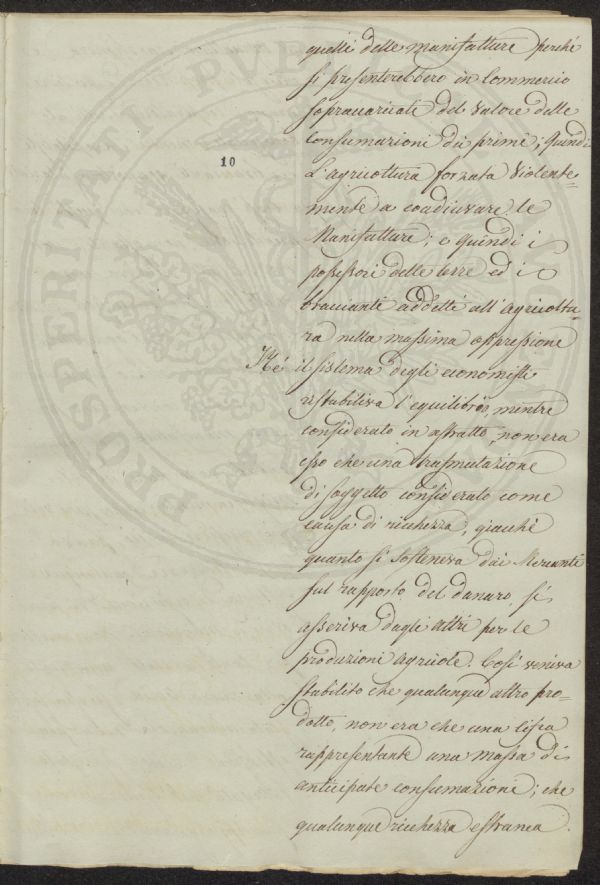 quelli delle manifatture perché
si presenterebbero in Commercio
sopracaricati del valore delle
consumazioni dei primi; Quindi
L'agricoltura forzata violente=
mente a coadiuvare le
Manifatture; e quindi i
possessori delle terre ed i
braccianti addetti all'Agricoltu=
ra nella massima oppressione
10
Né il sistema degli economisti
ristabiliva l'equilibrio, mentre
considerato in astratto, non era
esso che una trasmutazione
di soggetto considerato come
causa di ricchezza, giacché
quanto si sosteneva dai Mercanti
sul rapporto del danaro, si
asseriva dagli altri per le
produzioni Agricole. Così veniva
stabilito che qualunque altro pro=
dotto, non era che una cifra
rappresentante una massa di
anticipate consumazioni; che
qualunque ricchezza estranea
PROSPERITATI PUBLICAE